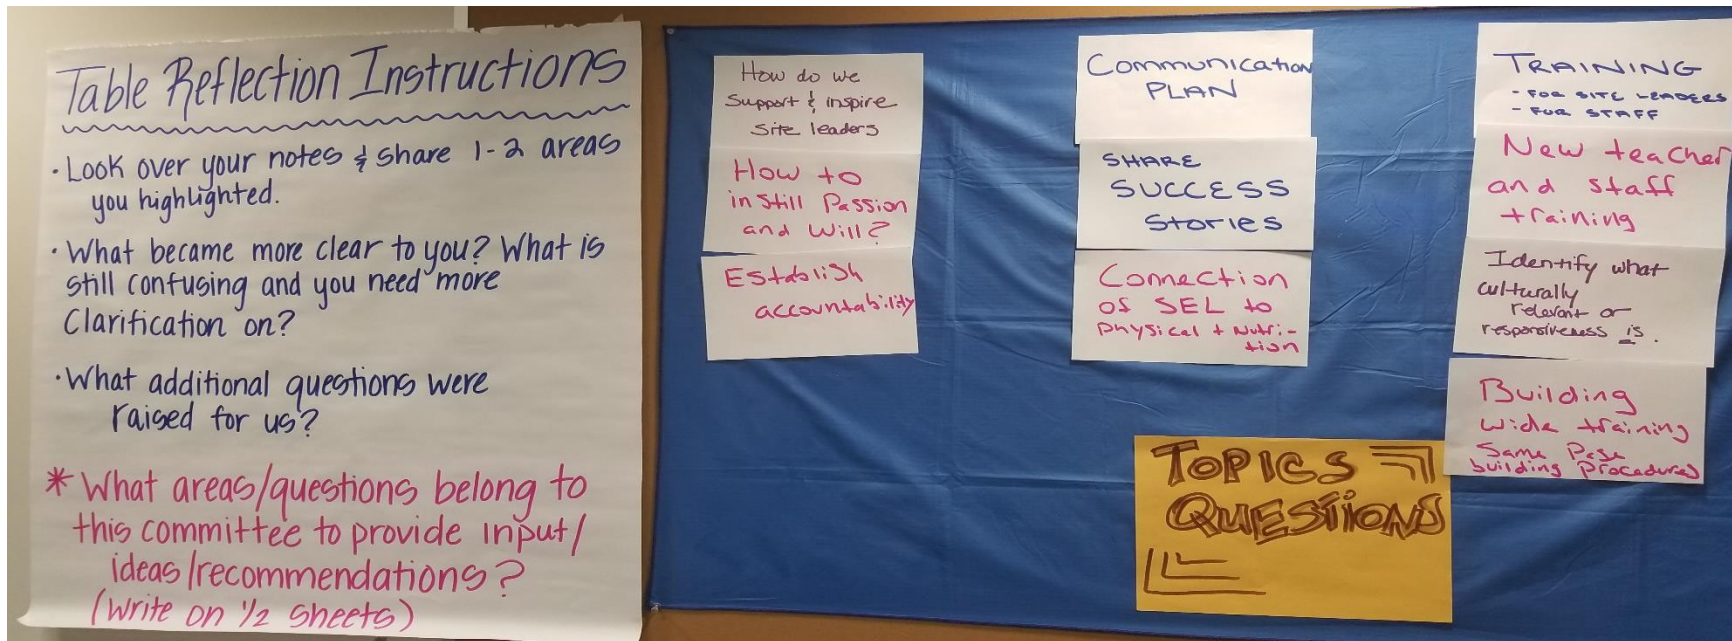 Table Reflection Instructions
· Look over your notes & share 1-2 areas
you highlighted.
· What became more clear to you? What is
still confusing and you need more
Clarification on?
· What additional questions were
raised for us?
* What areas/questions belong to
this committee to provide input/
ideas/recommendations?
(Write on 1/2 sheets)
How do we
Support & inspire
Site leaders
How to
instill Passion
and Will?
Establish
accountability
Communication
PLAN
SHARE
SUCCESS
Stories
Connection
of SEL to
Physical + Nutri-
tion
TRAINING
- FOR SITE LEADERS
- FOR STAFF
New teacher
and staff
training
Identify what
culturally
relevant or
responsiveness is.
Building
wide training
Same Page
building Procedures
TOPICS
QUESTIONS